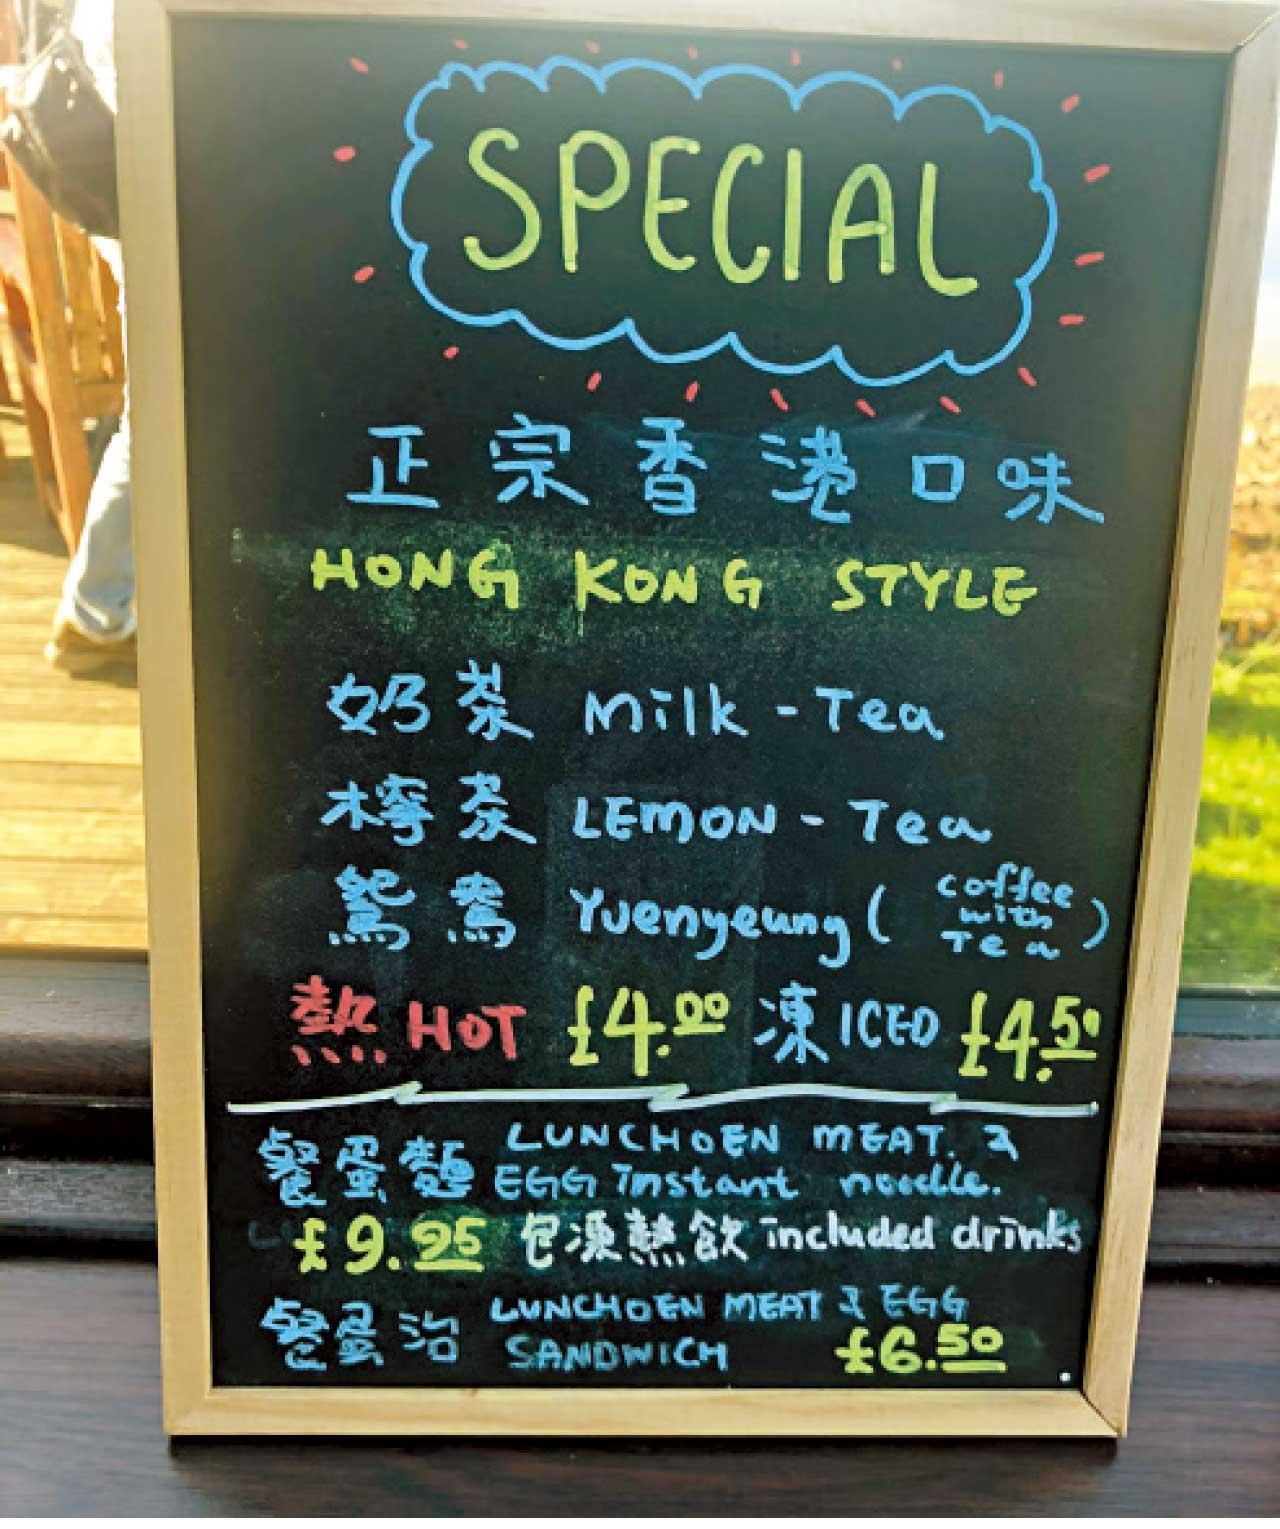 SPECIAL
正宗香港口味
HONG KONG STYLE
奶茶 Milk - Tea
檸茶 LEMON - Tea
鴛鴦 Yuenyeung ( coffee with Tea )
熱 HOT £4.00 凍 ICED £4.50
餐蛋麵 LUNCHOEN MEAT. &
EGG instant noodle.
£9.95 包凍熱飲 included drinks
餐蛋治 LUNCHOEN MEAT & EGG
SANDWICH £6.50